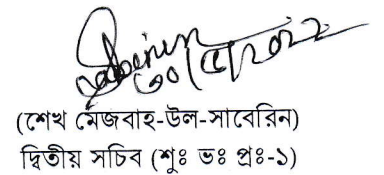 ৩০/৫/২০২২
(শেখ মেজবাহ-উল-সাবেরিন)
দ্বিতীয় সচিব (শুঃ ভঃ প্রঃ-১)